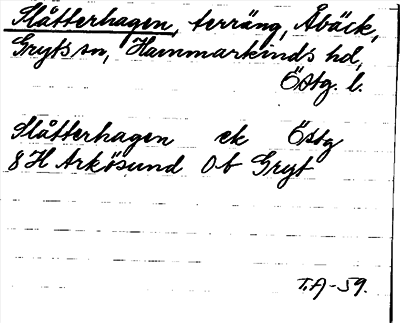 Slåtterhagen, terräng, Åbäck,
Gryts sn, Hammarkinds hd,
Östg. l.
Slåtterhagen ek Östg
8H Arkösund 0b Gryt
T.A-59.